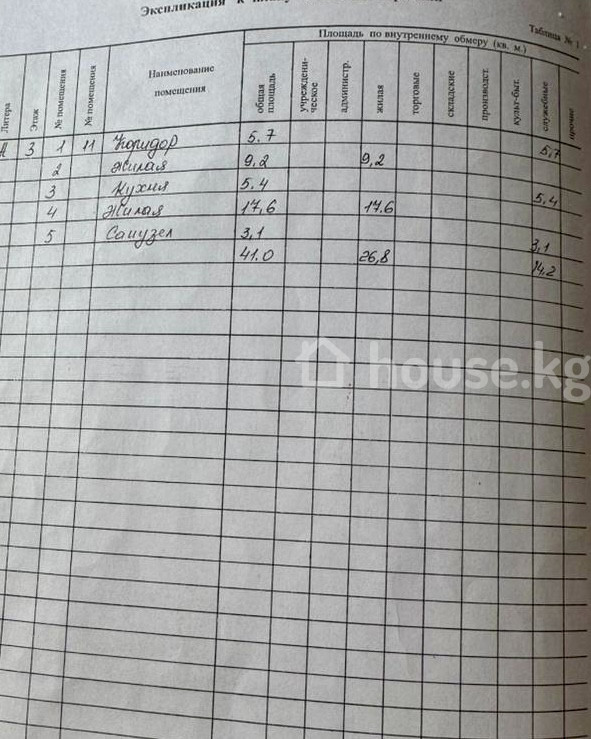 Экспликация к
Таблица № 1
Площадь по внутреннему обмеру (кв. м.)
Литера
Этаж
№ помещения
№ помещения
Наименование помещения
общая площадь
учреждени-ческое
администр.
жилая
торговые
складские
производст.
культ-быт.
служебные
прочие
А 3 1 11 Коридор 5.7 5,7
2 Жилая 9,2 9,2
3 Кухня 5.4 5,4
4 Жилая 17,6 17.6
5 Санузел 3,1 3,1
41.0 26,8 14,2
house.kg